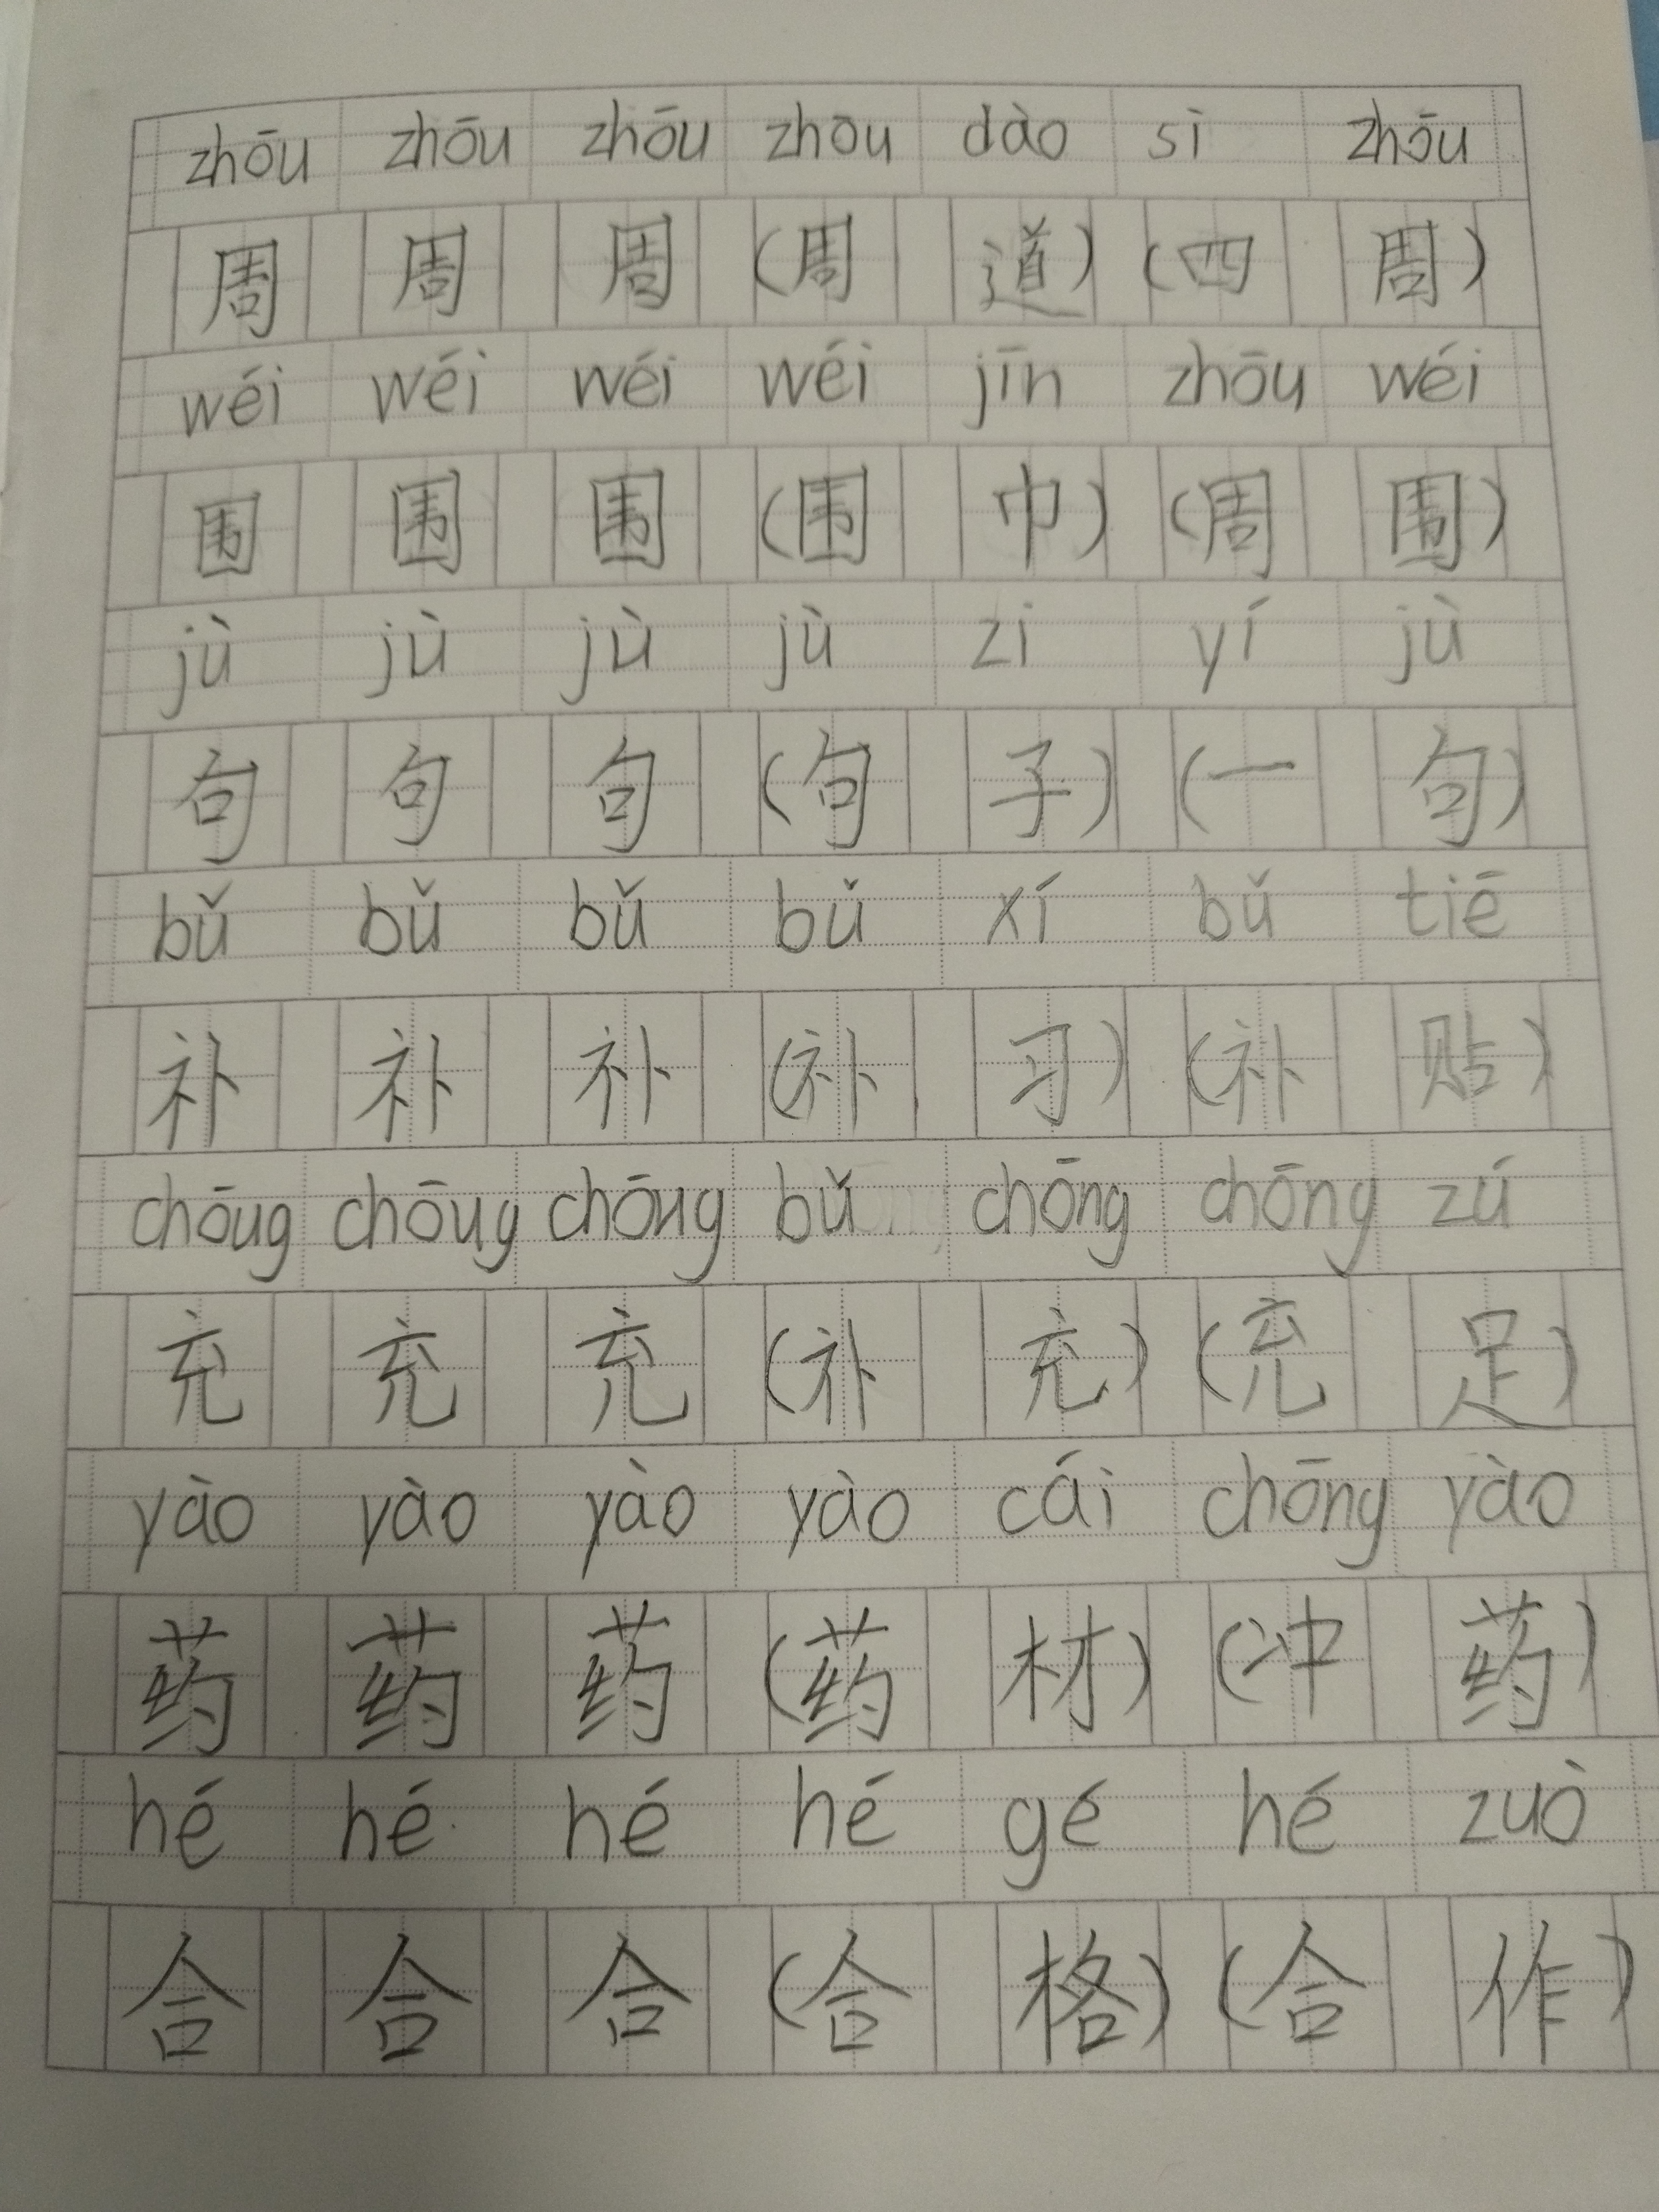 zhōu zhōu zhōu zhōu dào sì zhōu
周 周 周 (周 道) (四 周)
wéi wéi wéi wéi jīn zhōu wéi
围 围 围 (围 巾) (周 围)
jù jù jù jù zi yí jù
句 句 句 (句 子) (一 句)
bǔ bǔ bǔ bǔ xí bǔ tiē
补 补 补 (补 习) (补 贴)
chōug chōug chōug bǔ chōng chōng zú
充 充 充 (补 充) (充 足)
yào yào yào yào cái chōng yào
药 药 药 (药 材) (冲 药)
hé hé hé hé gé hé zuò
合 合 合 (合 格) (合 作)